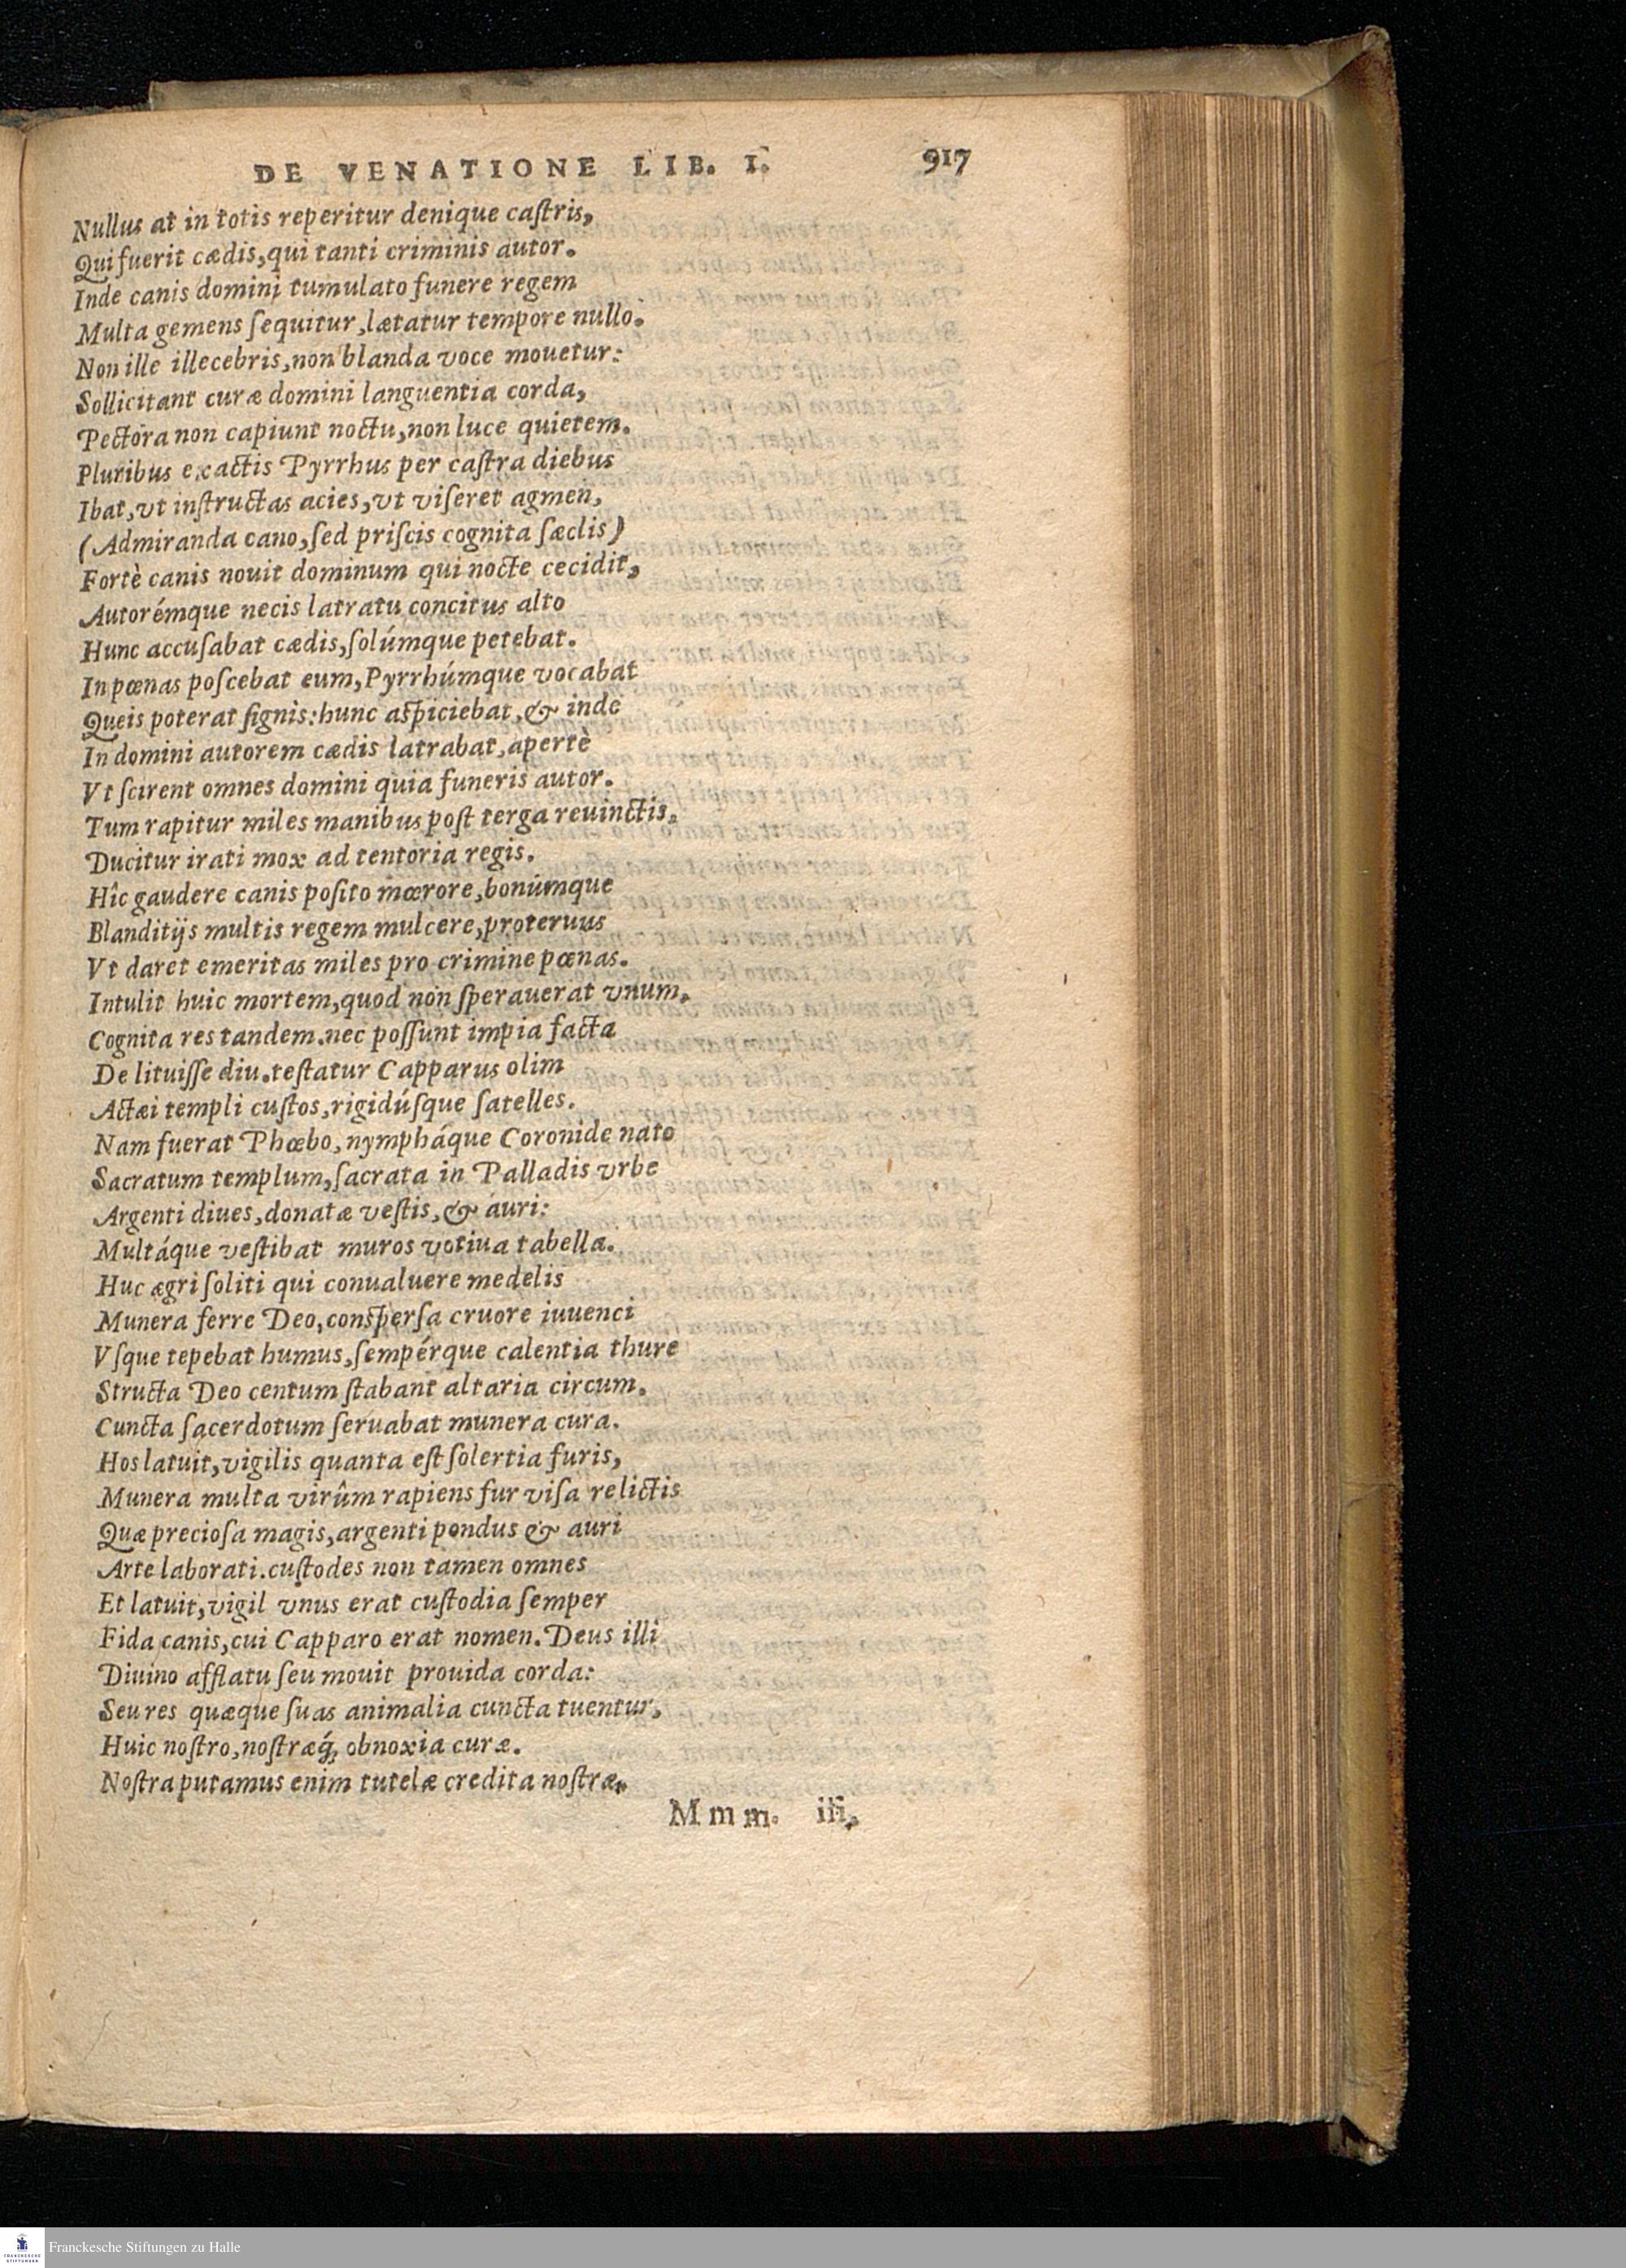 DE VENATIONE LIB. I. 917
Nullus at in totis reperitur denique caſtris,
Qui fuerit cædis, qui tanti criminis autor.
Inde canis domini tumulato funere regem
Multa gemens ſequitur, lætatur tempore nullo.
Non ille illecebris, non blanda voce mouetur:
Sollicitant curæ domini languentia corda,
Pectora non capiunt noctu, non luce quietem.
Pluribus exactis Pyrrhus per caſtra diebus
Ibat, vt inſtructas acies, vt viſeret agmen,
(Admiranda cano, ſed priſcis cognita ſæclis)
Fortè canis nouit dominum qui nocte cecidit,
Autorémque necis latratu concitus alto
Hunc accuſabat cædis, ſolúmque petebat.
In pœnas poſcebat eum, Pyrrhúmque vocabat
Queis poterat ſignis: hunc aſpiciebat, & inde
In domini autorem cædis latrabat, apertè
Vt ſcirent omnes domini quia funeris autor.
Tum rapitur miles manibus poſt terga reuinctis,
Ducitur irati mox ad tentoria regis.
Hîc gaudere canis poſito mœrore, bonúmque
Blanditijs multis regem mulcere, proteruus
Vt daret emeritas miles pro crimine pœnas.
Intulit huic mortem, quod non ſperauerat vnum,
Cognita res tandem. nec poſſunt impia facta
De lituiſſe diu. teſtatur Capparus olim
Actæi templi cuſtos, rigidúſque ſatelles.
Nam fuerat Phœbo, nympháque Coronide nato
Sacratum templum, ſacrata in Palladis vrbe
Argenti diues, donatæ veſtis, & auri:
Multáque veſtibat muros votiua tabella.
Huc ægri ſoliti qui conualuere medelis
Munera ferre Deo, conſperſa cruore iuuenci
Vſque tepebat humus, ſempérque calentia thure
Structa Deo centum ſtabant altaria circum.
Cuncta ſacerdotum ſeruabat munera cura.
Hos latuit, vigilis quanta eſt ſolertia furis,
Munera multa virûm rapiens fur viſa relictis
Quæ precioſa magis, argenti pondus & auri
Arte laborati. cuſtodes non tamen omnes
Et latuit, vigil vnus erat cuſtodia ſemper
Fida canis, cui Capparo erat nomen. Deus illi
Diuino afflatu ſeu mouit prouida corda:
Seu res quæque ſuas animalia cuncta tuentur,
Huic noſtro, noſtræq́; obnoxia curæ.
Noſtra putamus enim tutelæ credita noſtræ.
Mmm. iii.
Franckesche Stiftungen zu Halle